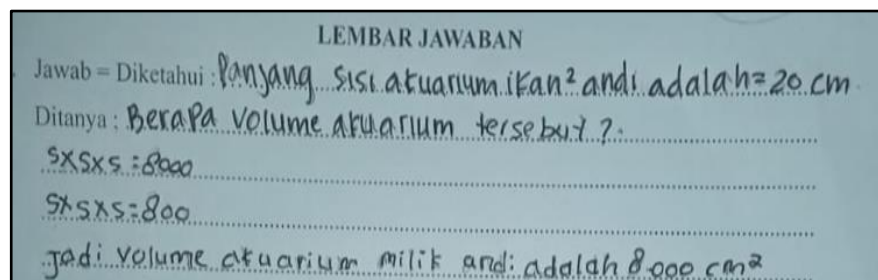 LEMBAR JAWABAN
Jawab = Diketahui : Panjang sisi akuarium ikan² andi adalah = 20 cm
Ditanya : Berapa volume akuarium tersebut ?.
s x s x s = 8000
s x s x s = 800
Jadi volume akuarium milik andi adalah 8.000 cm²